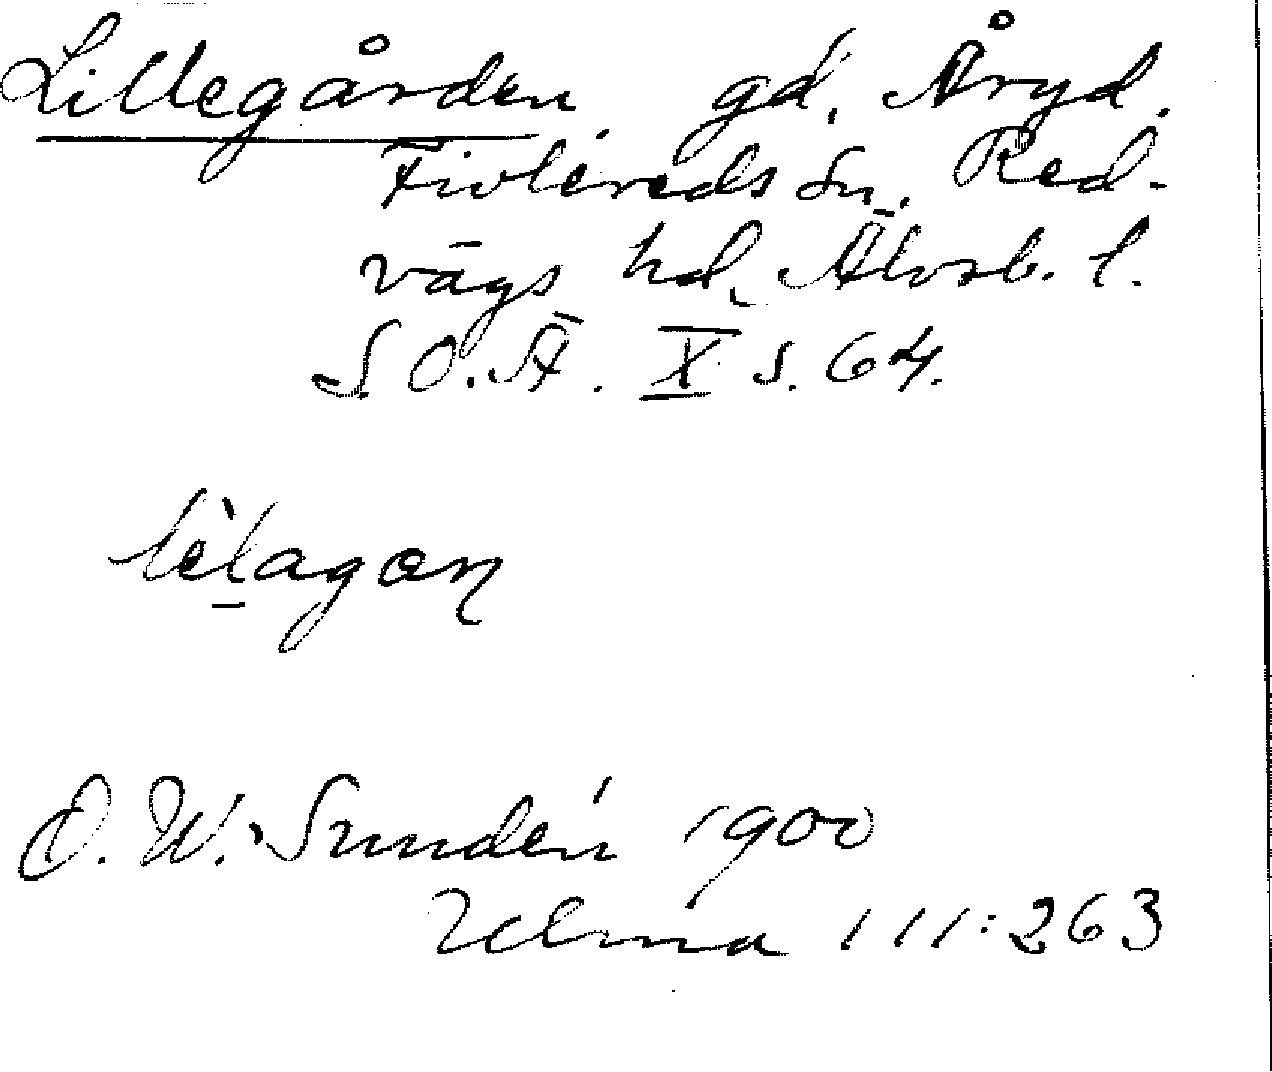 Lillegården gd. Åryd.
Fivlereds sn. Red-
vägs hd. Älvsb. l.
S. O. Ä. X s. 64.
O. W. Sundén 1900
Ulma 111:263